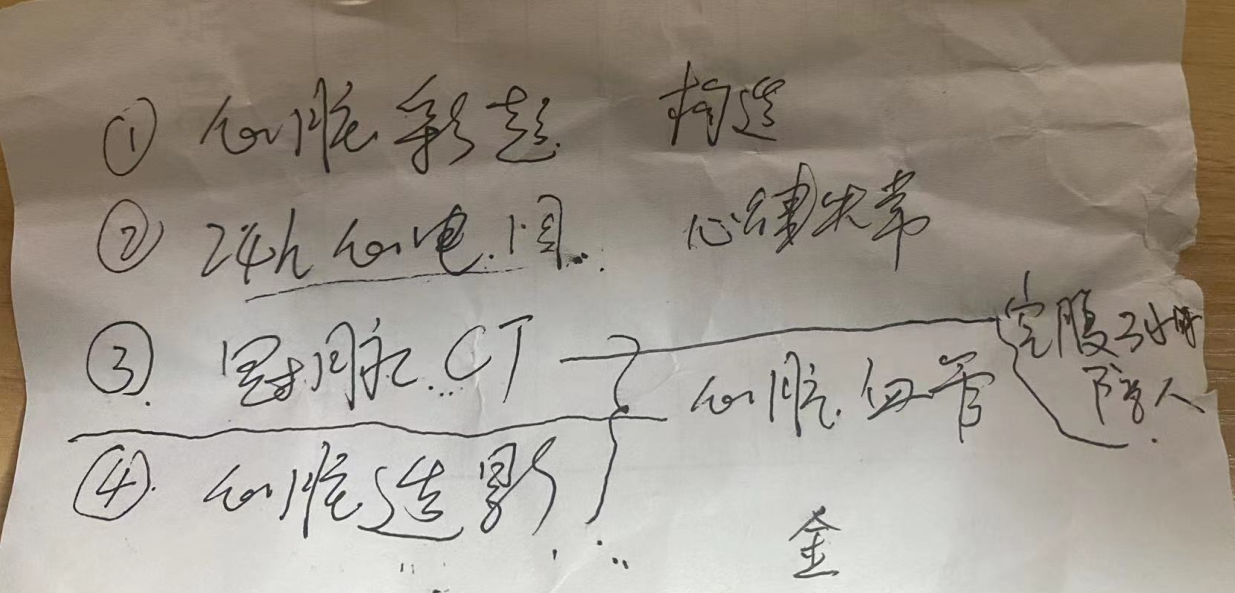 ① 心脏彩超 构造
② 24h 心电图 心律失常
③ 冠脉 CT 空腹3小时
心脏血管
④ 心脏造影
金